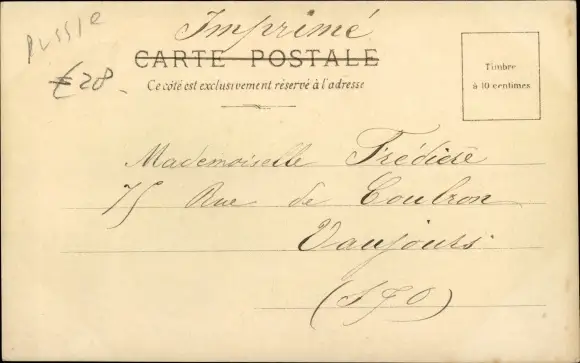 Russie
€ 28 -
Imprimé
CARTE POSTALE
Ce côté est exclusivement réservé à l'adresse
Timbre
à 10 centimes
Mademoiselle Frédière
75 Rue de Coubron
Vaujours
(S&O)